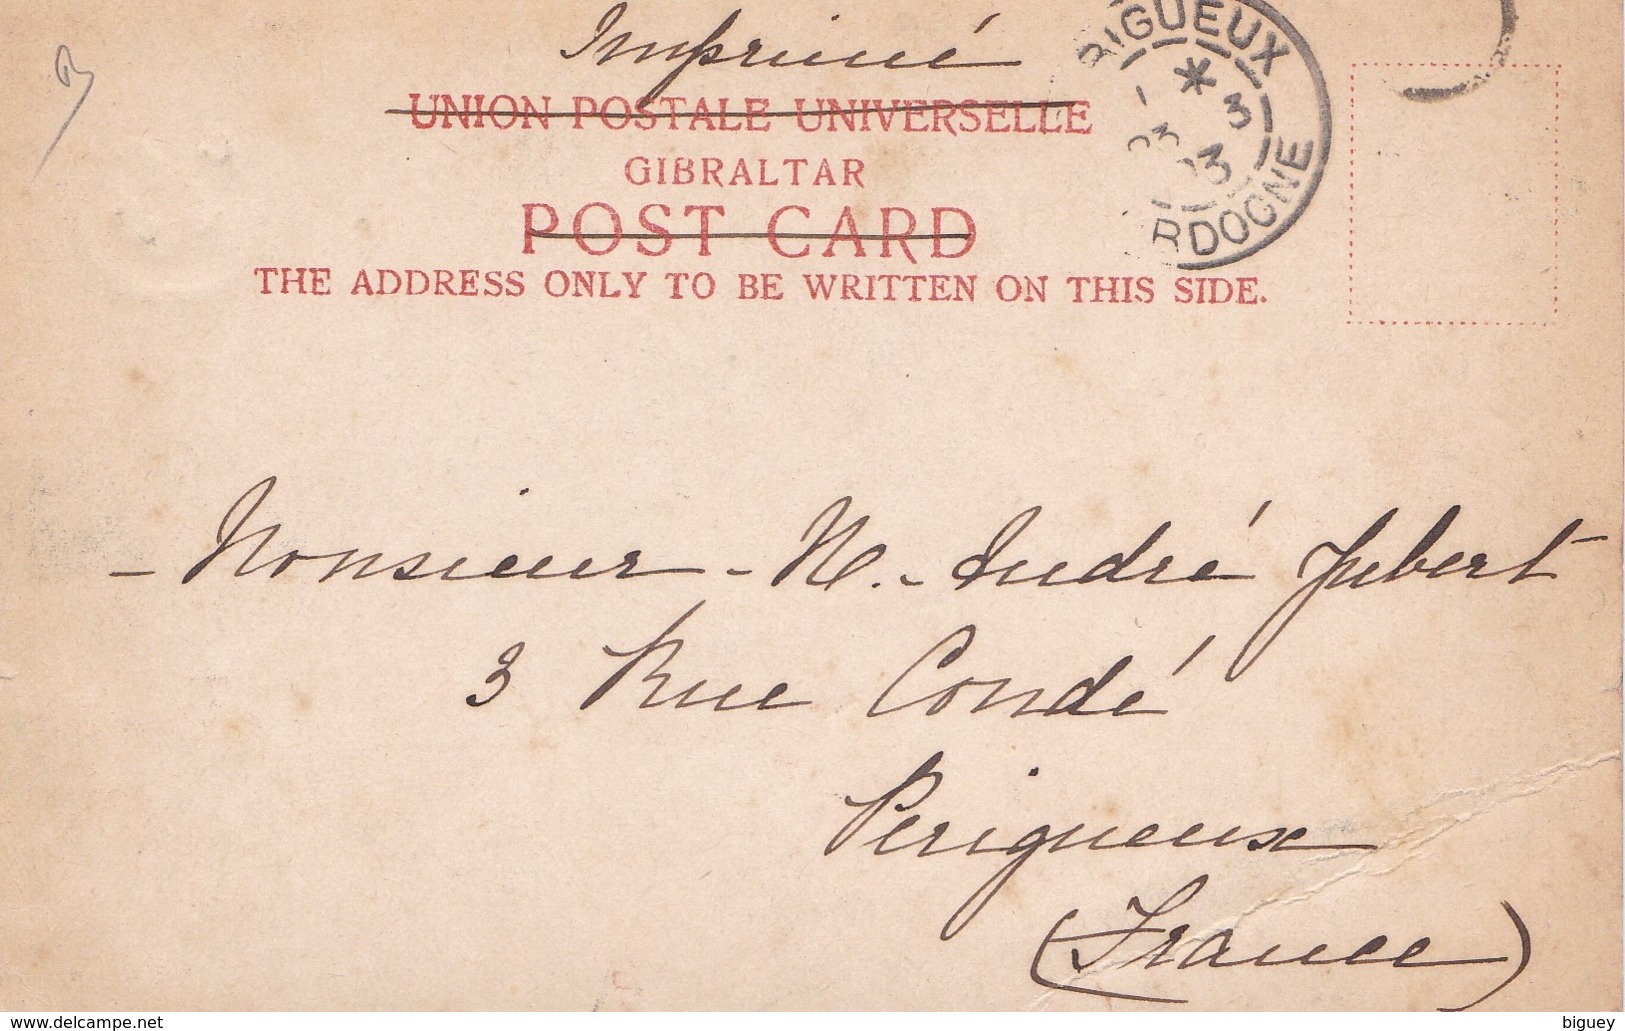 Imprimé
UNION POSTALE UNIVERSELLE
GIBRALTAR
POST CARD
THE ADDRESS ONLY TO BE WRITTEN ON THIS SIDE.
RIGUEUX
3
03
RDOGNE
- Monsieur - M. - André Jubert
3 Rue Condé
Perigueux
(France)
www.delcampe.net
biguey